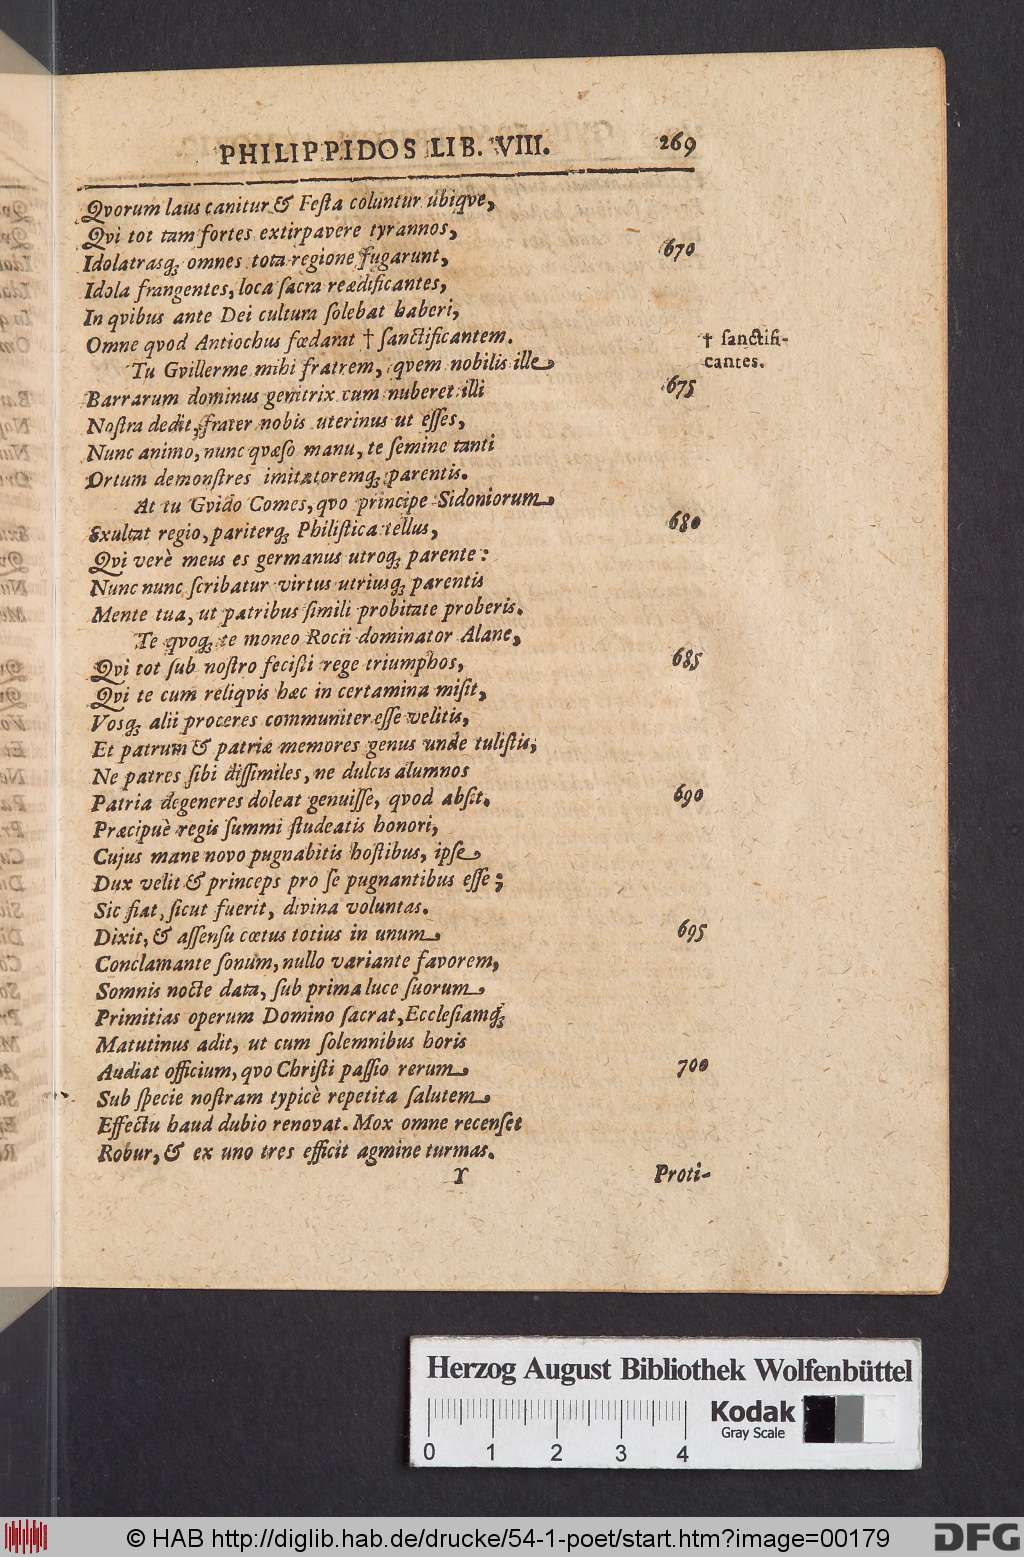 PHILIPPIDOS LIB. VIII. 269
Qvorum laus canitur & Festa coluntur ubiqve,
Qvi tot tam fortes extirpavere tyrannos,
Idolatrasq; omnes tota regione fugarunt, 670
Idola frangentes, loca sacra reædificantes,
In qvibus ante Dei cultura solebat haberi,
Omne qvod Antiochus fœdarat † sanctificantem. † sanctifi-
cantes.
Tu Gvillerme mihi fratrem, qvem nobilis ille
Barrarum dominus genitrix cum nuberet illi 675
Nostra dedit, frater nobis uterinus ut esses,
Nunc animo, nunc qvæso manu, te semine tanti
Ortum demonstres imitatoremq; parentis.
At tu Gvido Comes, qvo principe Sidoniorum
Exultat regio, pariterq; Philistica tellus, 680
Qvi verè meus es germanus utroq; parente:
Nunc nunc scribatur virtus utriusq; parentis
Mente tua, ut patribus simili probitate proberis.
Te qvoq; te moneo Rocii dominator Alane,
Qvi tot sub nostro fecisti rege triumphos, 685
Qvi te cum reliqvis hæc in certamina misit,
Vosq; alii proceres communiter esse velitis,
Et patrum & patriæ memores genus unde tulistis,
Ne patres sibi dissimiles, ne dulcis alumnos
Patria degeneres doleat genuisse, qvod absit. 690
Præcipuè regis summi studeatis honori,
Cujus mane novo pugnabitis hostibus, ipse
Dux velit & princeps pro se pugnantibus esse;
Sic fiat, sicut fuerit, divina voluntas.
Dixit, & assensu cœtus totius in unum 695
Conclamante sonum, nullo variante favorem,
Somnis nocte data, sub prima luce suorum
Primitias operum Domino sacrat, Ecclesiamq;
Matutinus adit, ut cum solemnibus horis
Audiat officium, qvo Christi passio rerum 700
Sub specie nostram typicè repetita salutem
Effectu haud dubio renovat. Mox omne recenset
Robur, & ex uno tres efficit agmine turmas.
Y Proti-
Herzog August Bibliothek Wolfenbüttel
Kodak
Gray Scale
0 1 2 3 4
© HAB http://diglib.hab.de/drucke/54-1-poet/start.htm?image=00179
DFG